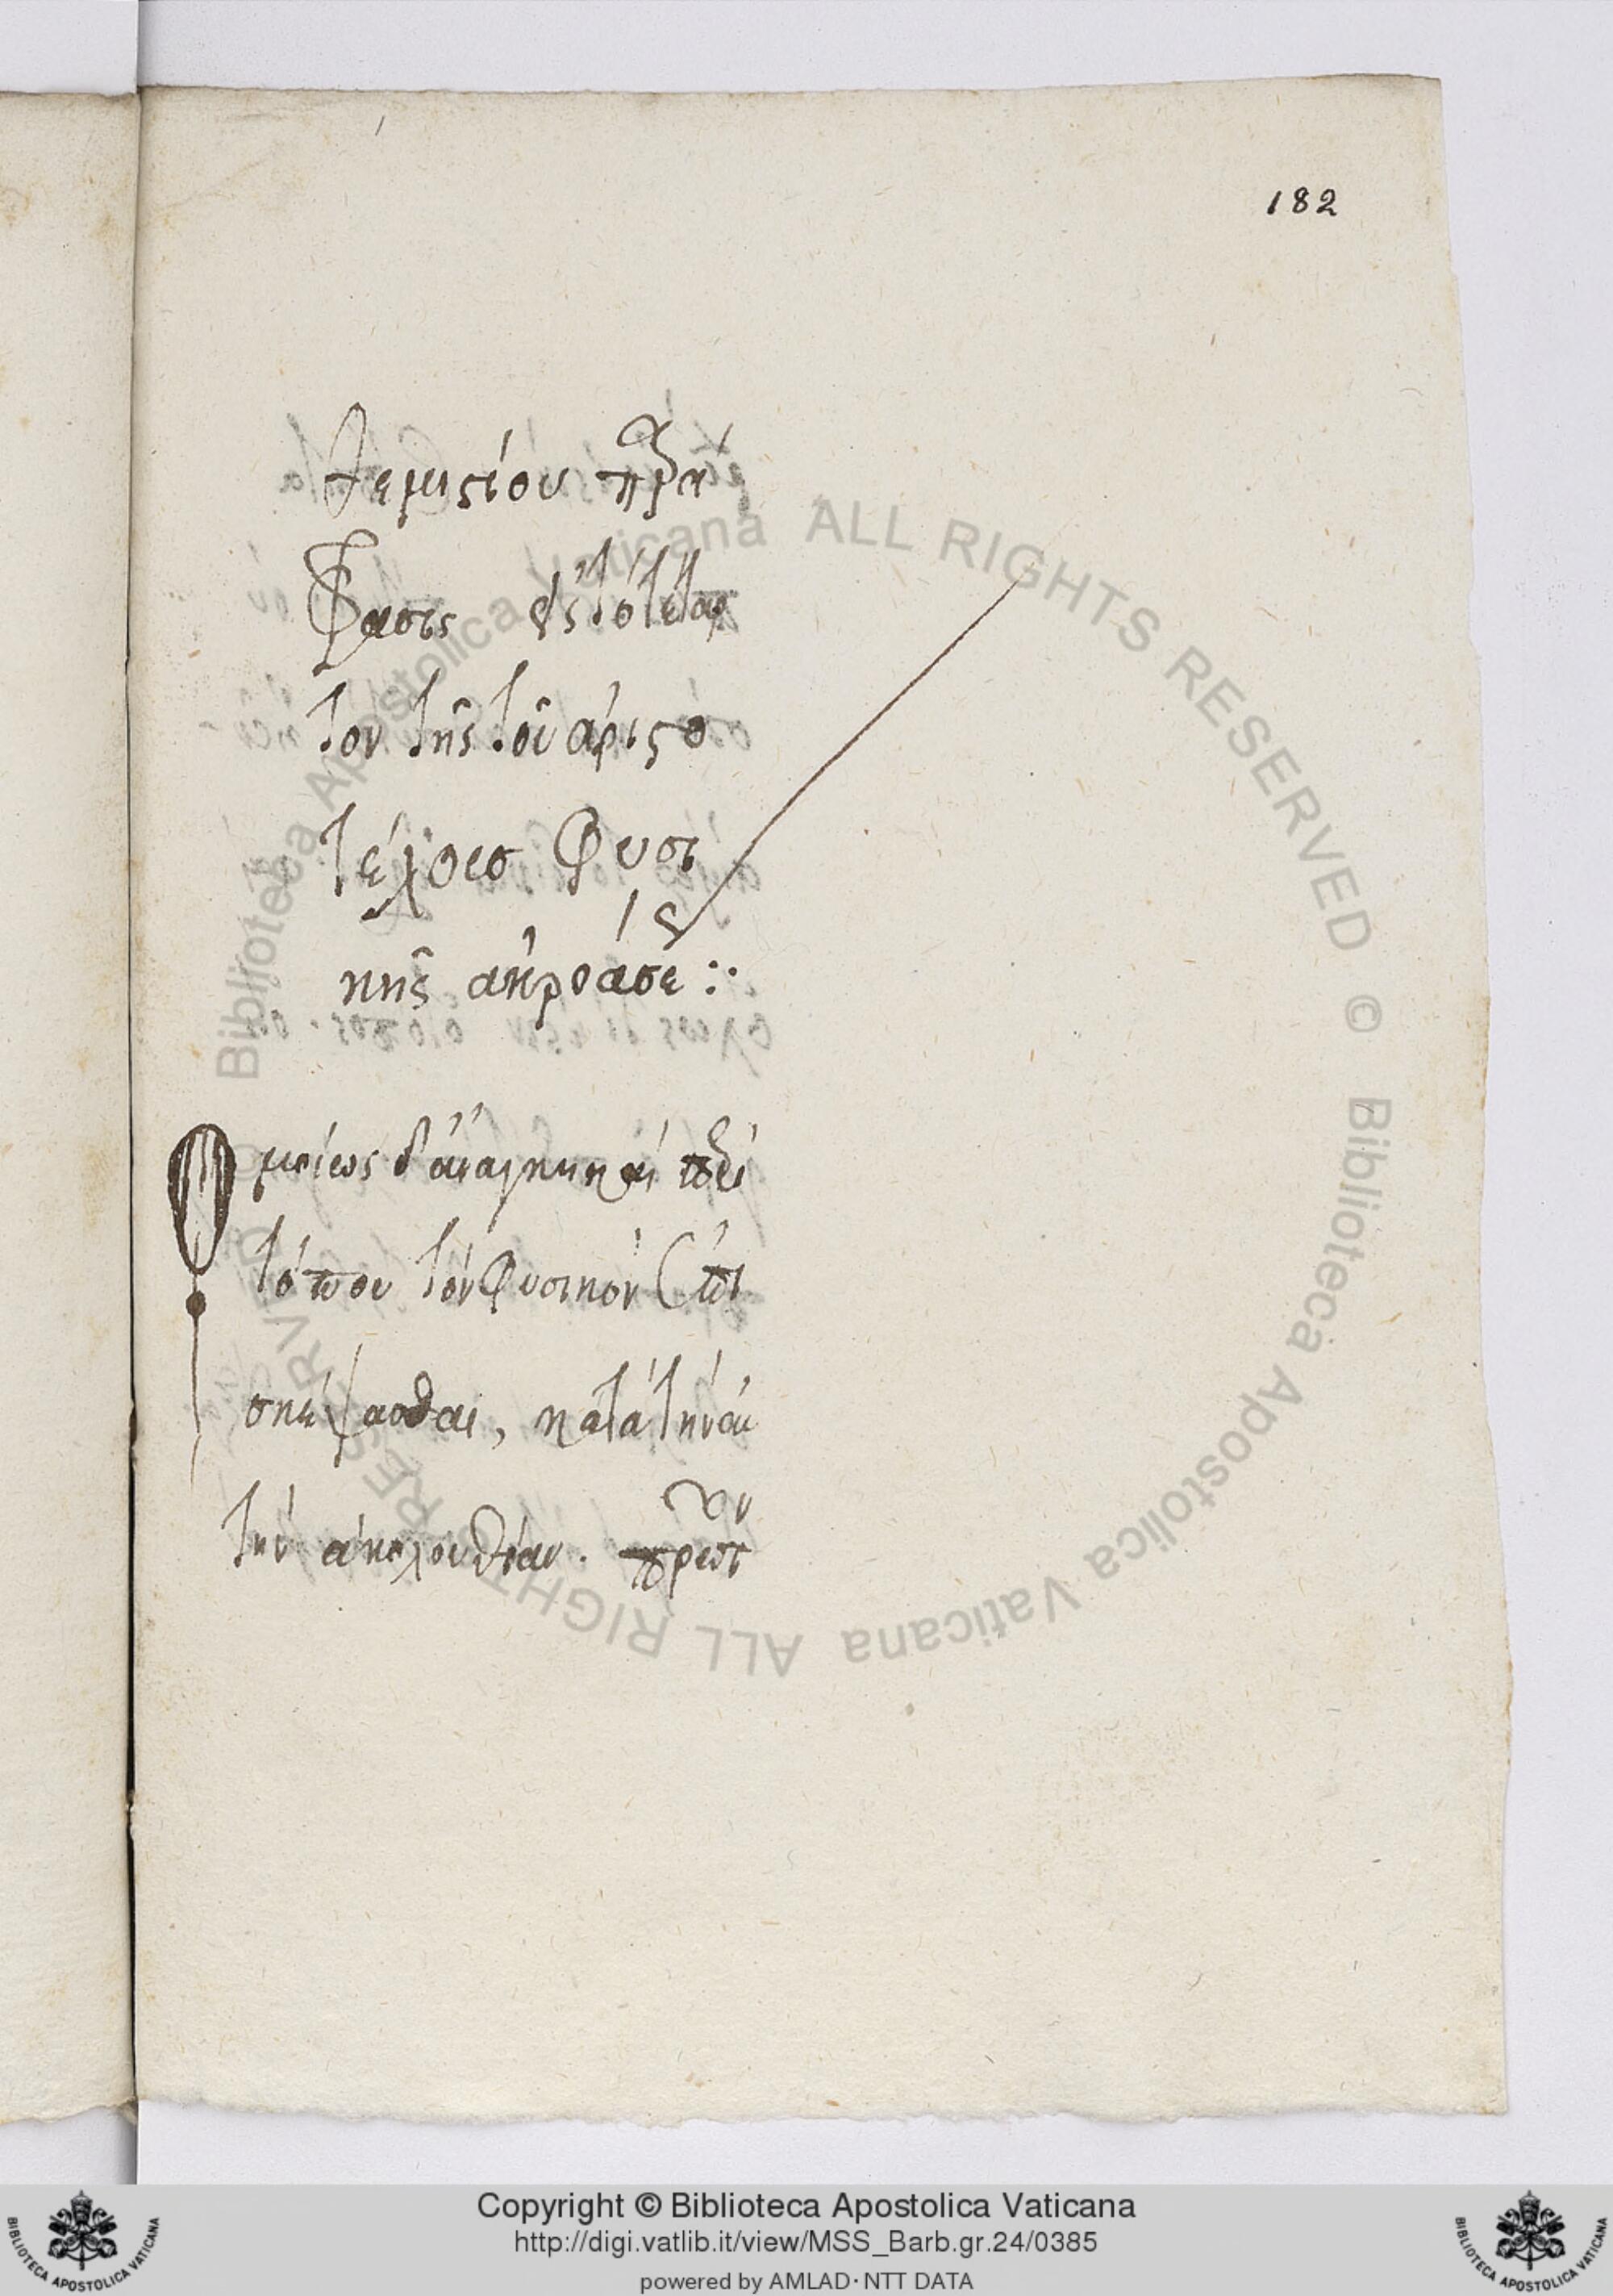 182
θεμιστίου παρά
φρασις εἰς τὸ τέταρ
τον τῆς τοῦ ἀριστο
τέλους φυσι
κῆς ἀκροάσεως :·
Ὁμοίως δ' ἀνάγκη καὶ περὶ
τόπου τὸν φυσικὸν ἐπι
σκέψασθαι, κατὰ τὴν αὐ
τὴν ἀκολουθίαν. πρῶτον
Biblioteca Apostolica Vaticana ALL RIGHTS RESERVED © Biblioteca Apostolica Vaticana ALL RIGHTS RESERVED ©
Copyright © Biblioteca Apostolica Vaticana
http://digi.vatlib.it/view/MSS_Barb.gr.24/0385
powered by AMLAD · NTT DATA
BIBLIOTECA APOSTOLICA VATICANA
BIBLIOTECA APOSTOLICA VATICANA